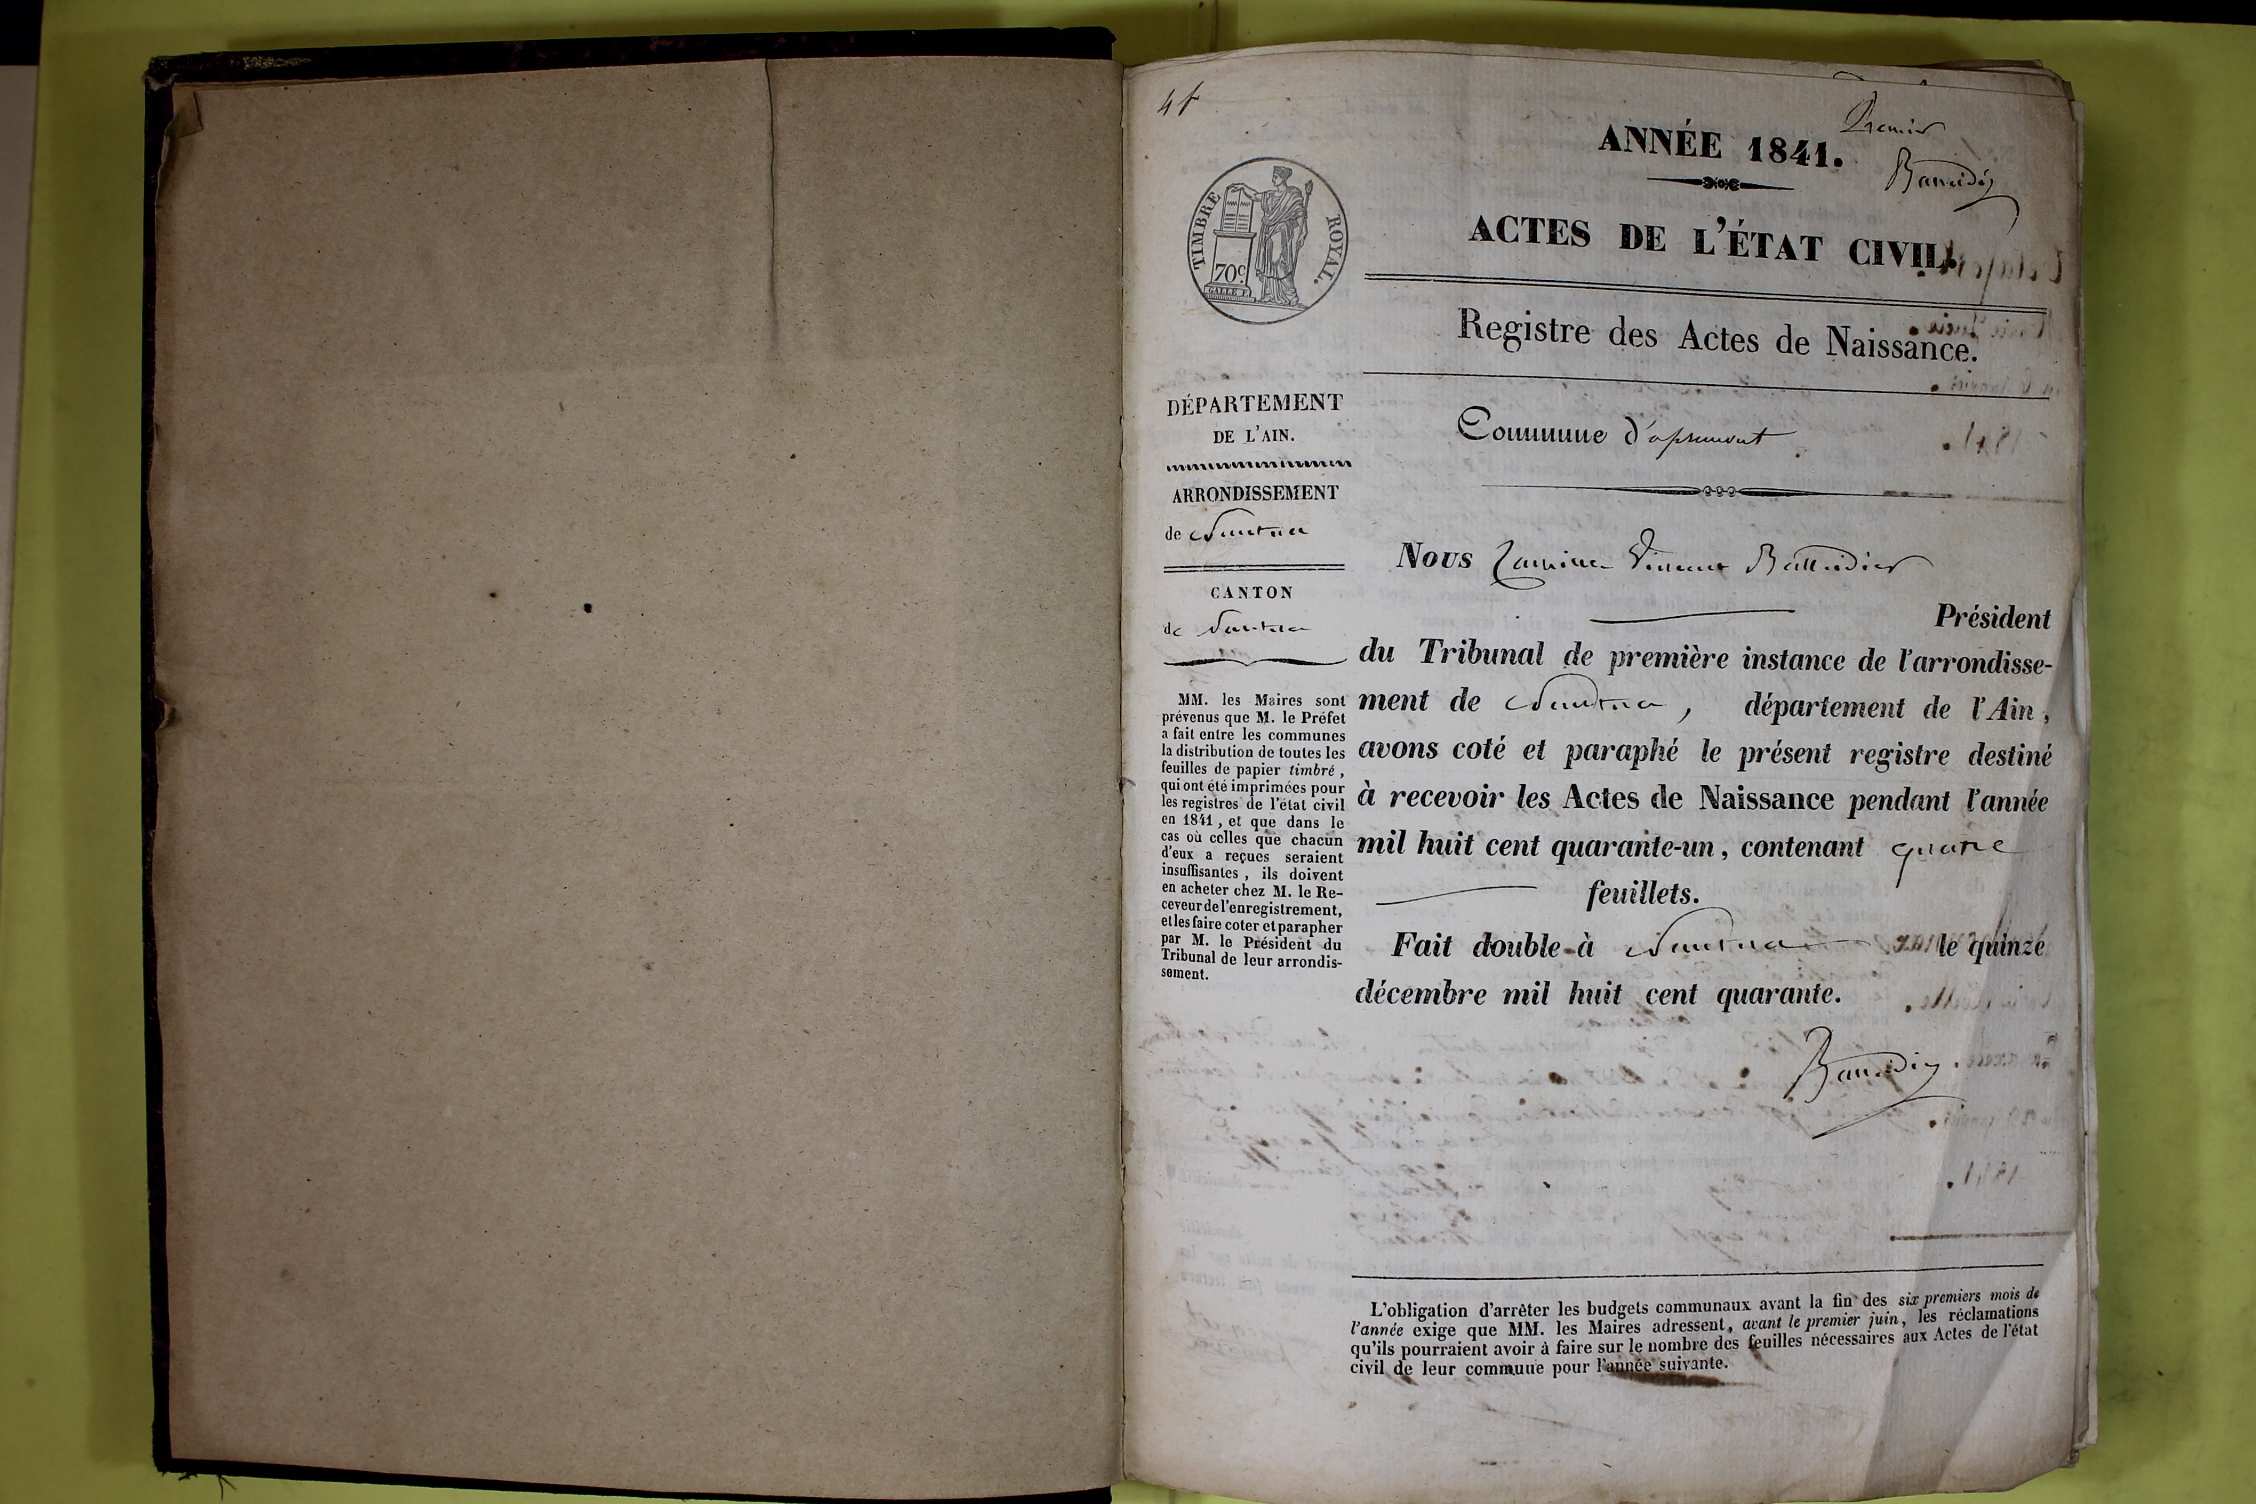 4 f
Premier
ANNÉE 1841.
TIMBRE ROYAL.
70c.
ACTES DE L'ÉTAT CIVIL.
Registre des Actes de Naissance.
DÉPARTEMENT
DE L'AIN.
ARRONDISSEMENT
de Nantua
CANTON
de Nantua
MM. les Maires sont
prévenus que M. le Préfet
a fait entre les communes
la distribution de toutes les
feuilles de papier timbré,
qui ont été imprimées pour
les registres de l'état civil
en 1841, et que dans le
cas où celles que chacun
d'eux a reçues seraient
insuffisantes, ils doivent
en acheter chez M. le Re-
ceveur de l'enregistrement,
et les faire coter et parapher
par M. le Président du
Tribunal de leur arrondis-
sement.
Commune d'apremont
Nous Vincent
Président
du Tribunal de première instance de l'arrondisse-
ment de Nantua, département de l'Ain,
avons coté et paraphé le présent registre destiné
à recevoir les Actes de Naissance pendant l'année
mil huit cent quarante-un, contenant quatre
feuillets.
Fait double à Nantua le quinze
décembre mil huit cent quarante.
L'obligation d'arrêter les budgets communaux avant la fin des six premiers mois de
l'année exige que MM. les Maires adressent, avant le premier juin, les réclamations
qu'ils pourraient avoir à faire sur le nombre des feuilles nécessaires aux Actes de l'état
civil de leur commune pour l'année suivante.